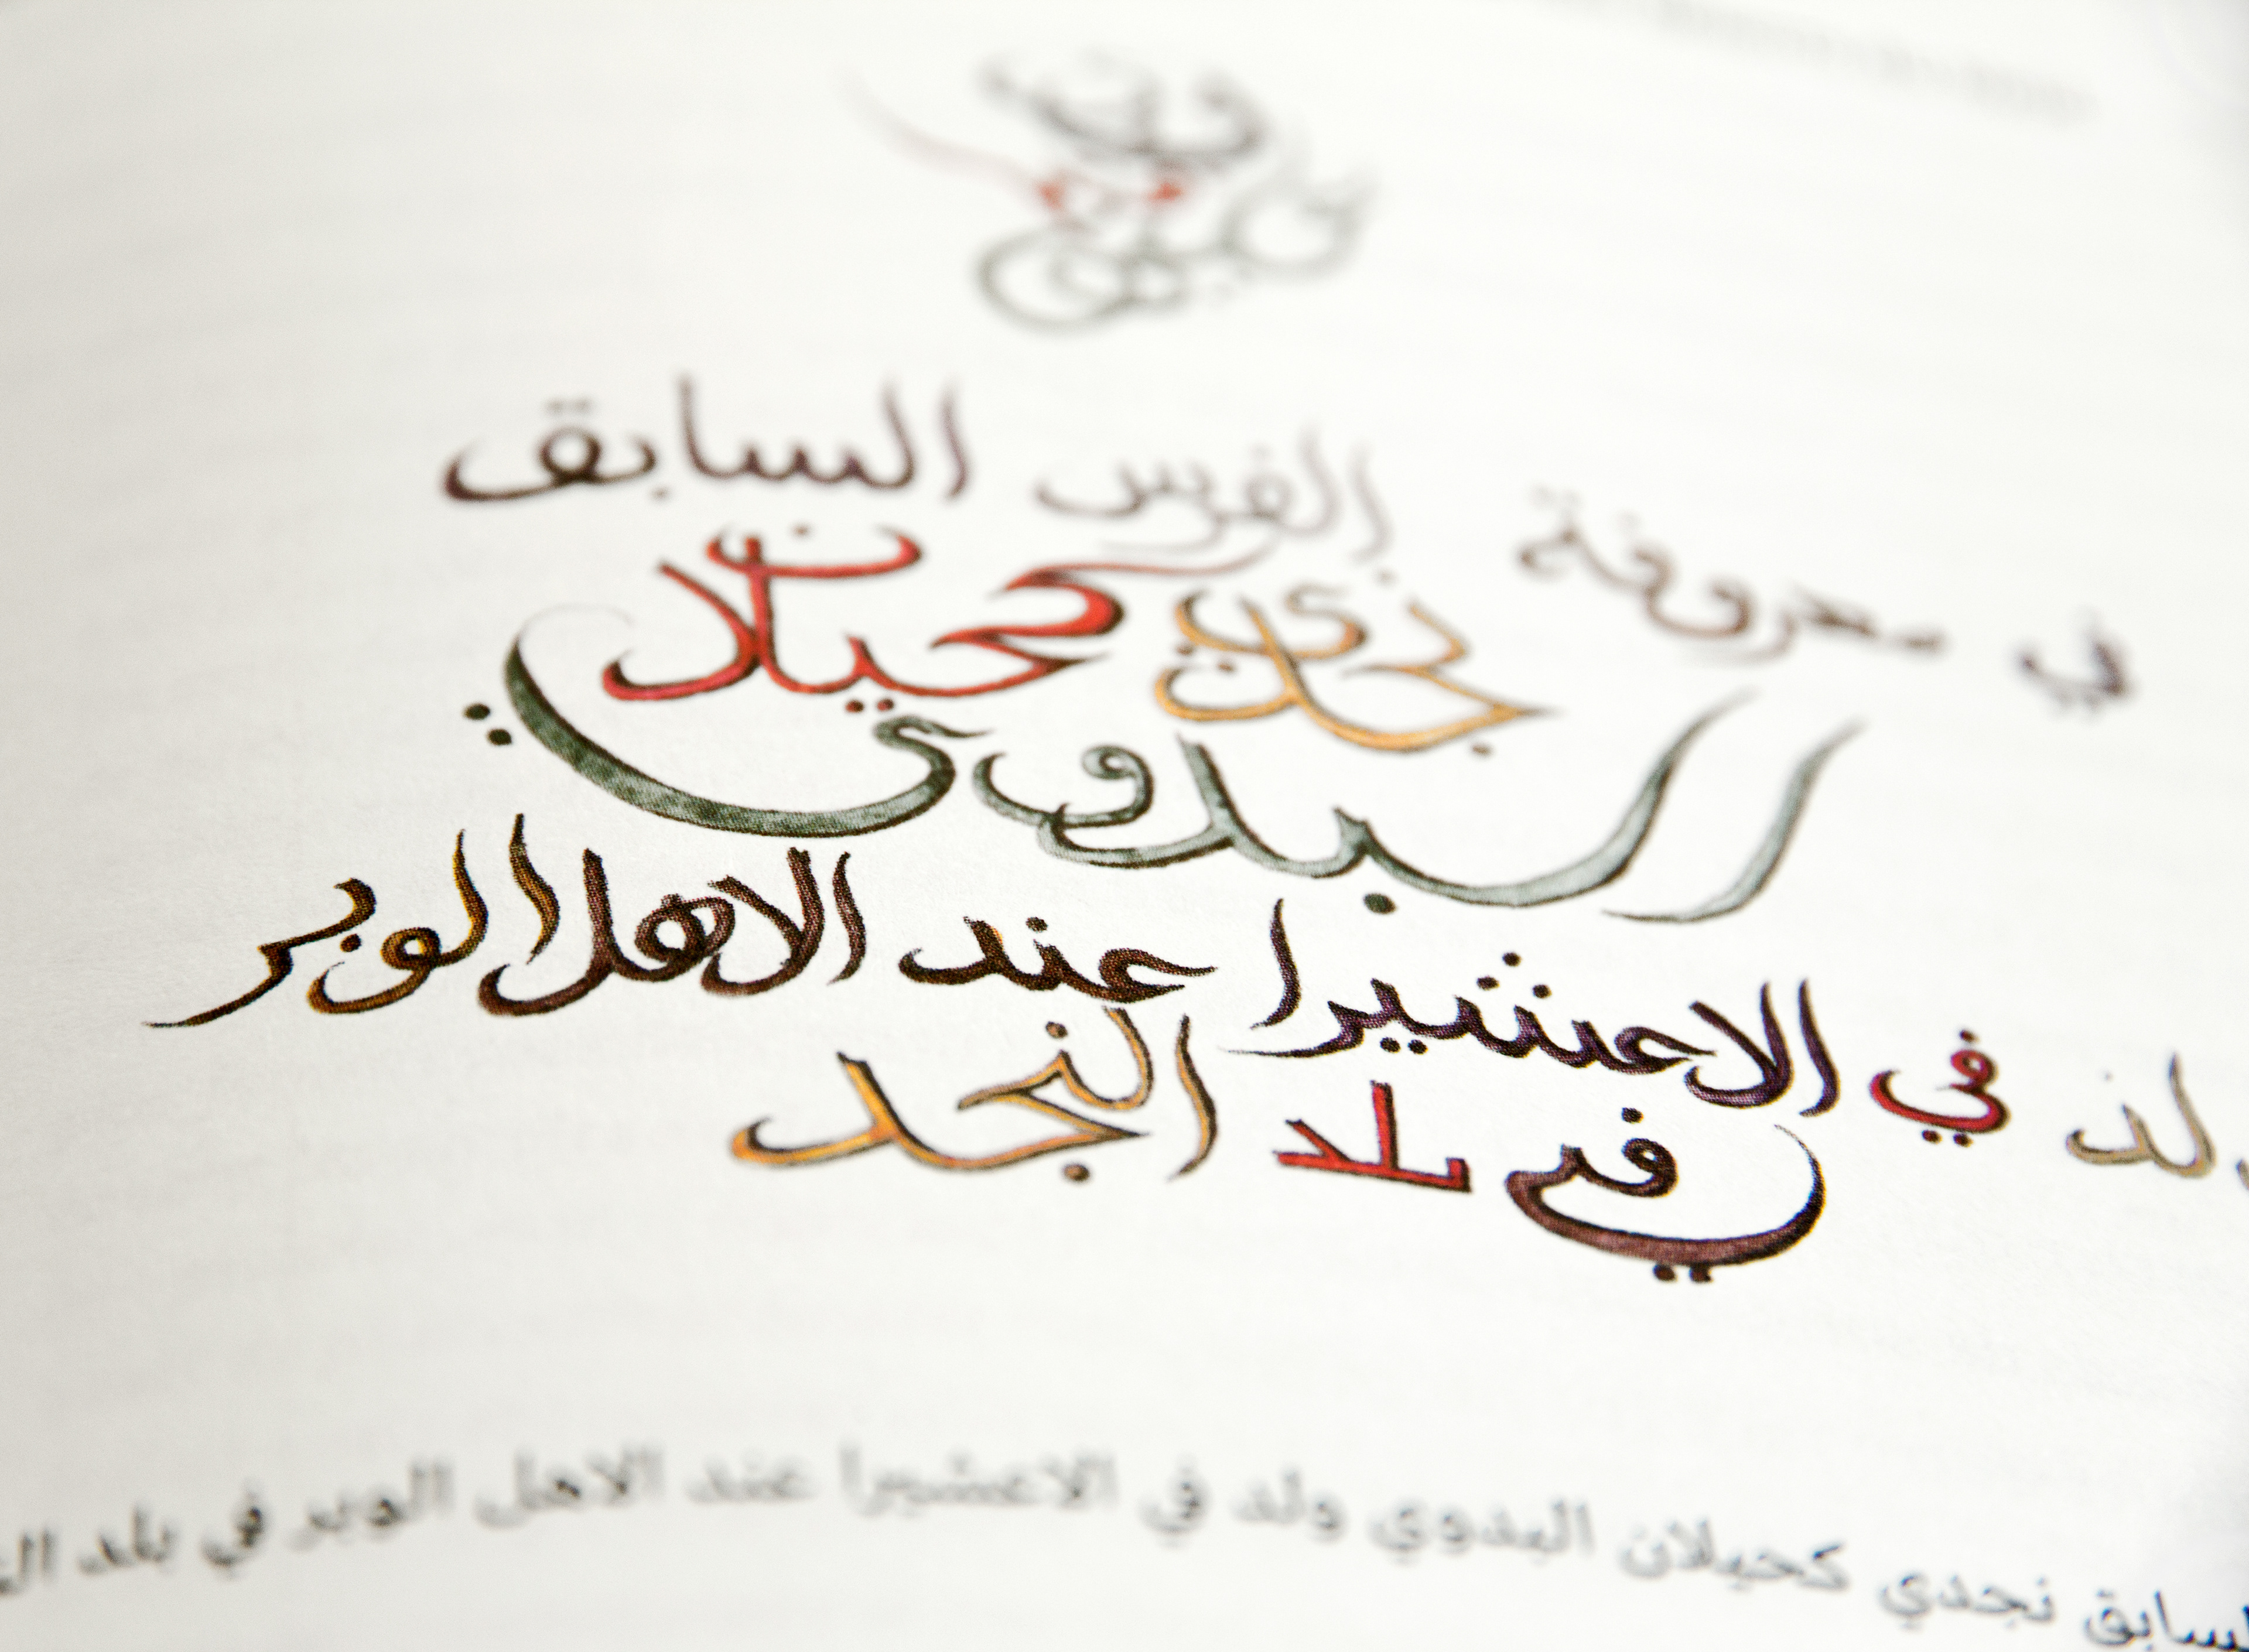 في معرفة الفرس السابق
نجدي كحيلان
البدوي
ولد في الاعشيرا عند الاهل الوبر
في بلد النجد
السابق نجدي كحيلان البدوي ولد في الاعشيرا عند الاهل الوبر في بلد